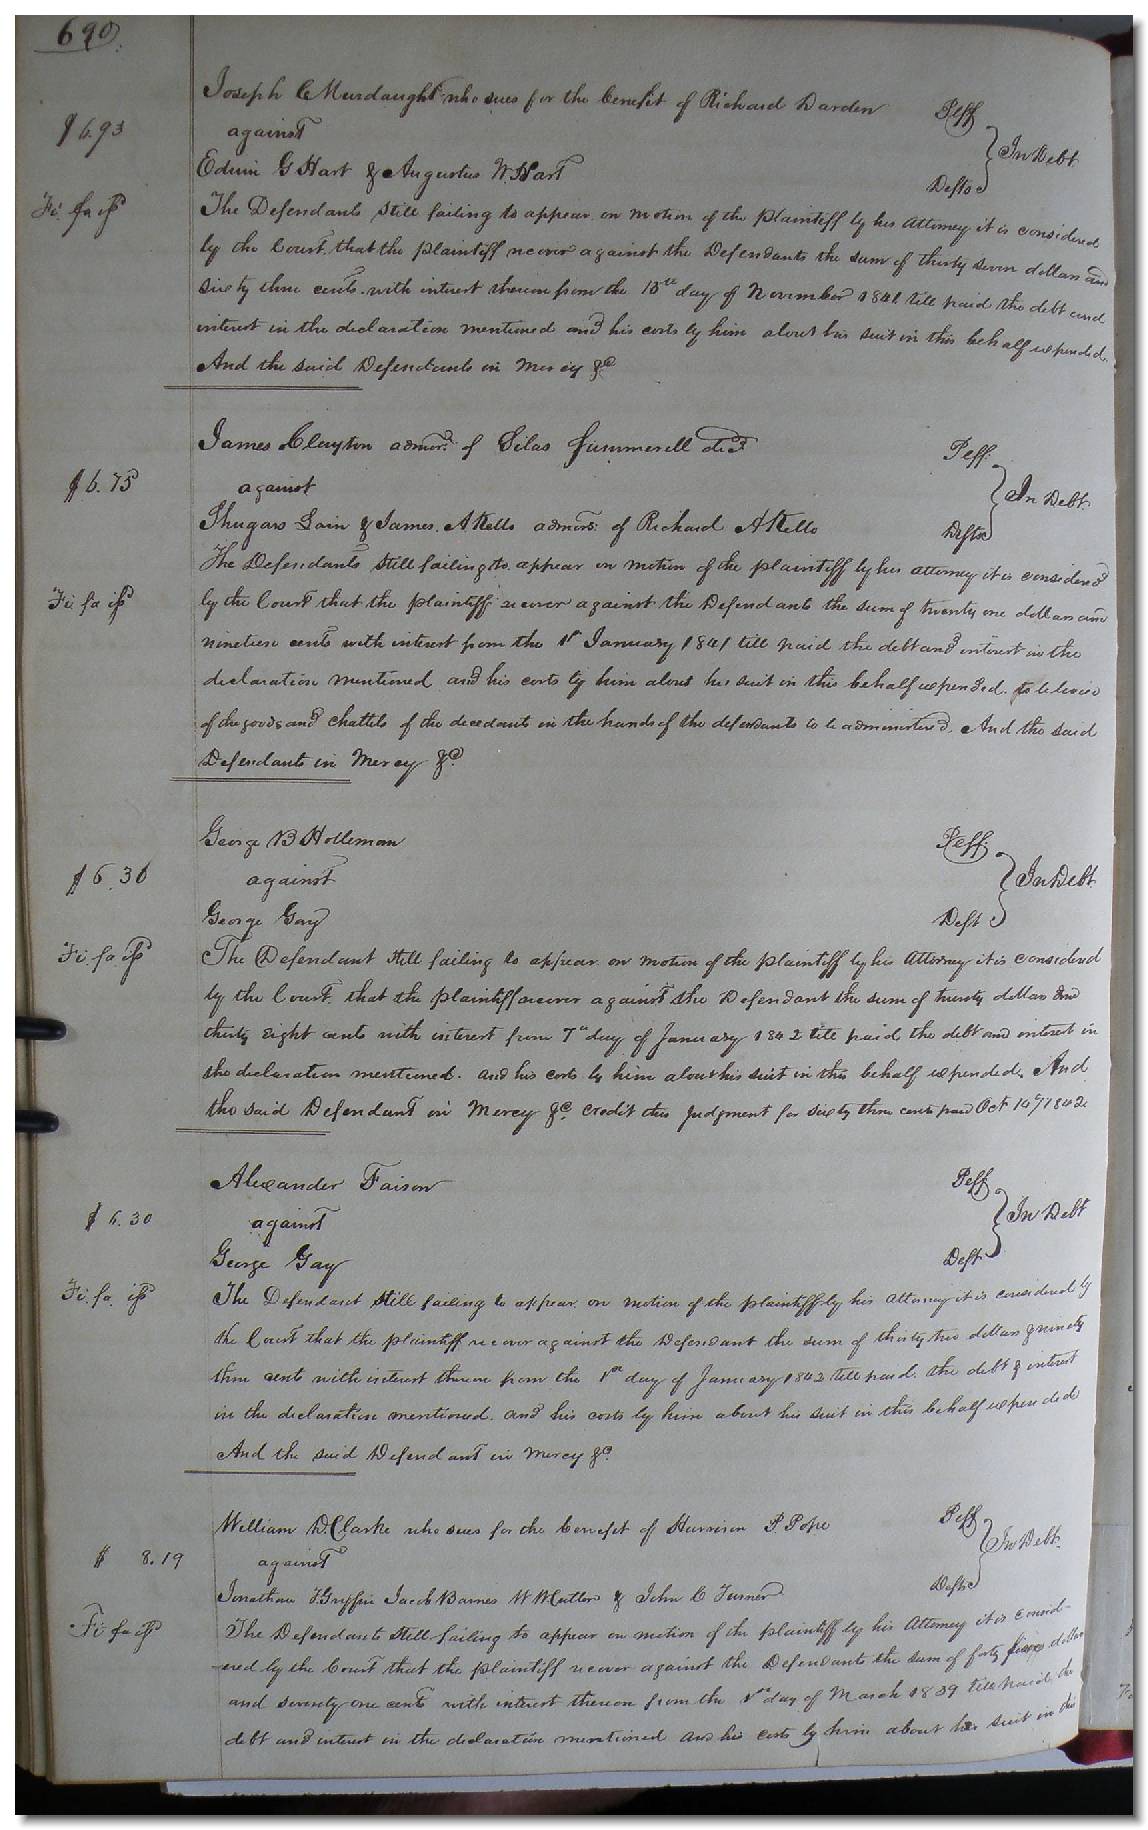 690
Joseph C Murdaugh who sues for the benefit of Richard Darden Peff
$6.93
against
In Debt
Edwin G Hart & Augustus W Hart Defts
Fi. fa iss
The Defendants still failing to appear on motion of the plaintiff by his Attorney it is considered
by the Court that the plaintiff recover against the Defendants the sum of thirty seven dollars and
sixty three cents with interest thereon from the 15th day of November 1841 till paid the debt and
interest in the declaration mentioned and his costs by him about his suit in this behalf expended.
And the said Defendants in Mercy &c
James Clayton admor. of Silas Summerell decd Peff.
$6.75
against
In Debt.
Shugars Lain & James Atkello admors: of Richard Atkello Defts
The Defendants still failing to appear on motion of the plaintiff by his attorney it is considered
Fi fa iss
by the Court that the plaintiff recover against the Defendants the sum of twenty one dollars and
nineteen cents with interest from the 1st January 1841 till paid the debt and interest in the
declaration mentioned and his costs by him about his suit in this behalf expended. to be levied
of the goods and chattels of the decedants in the hands of the defendants to be administered. And the said
Defendants in Mercy &c.
George B Holleman Peff.
$6.36
against
In Debt
George Gay Deft
Fi. fa iss
The Defendant still failing to appear on motion of the plaintiff by his Attorney it is considered
by the Court that the plaintiff recover against the Defendant the sum of twenty dollars and
thirty eight cents with interest from 7th day of January 1842 till paid the debt and interest in
the declaration mentioned. and his costs by him about his suit in this behalf expended. And
the said Defendant in Mercy &c. Credit this Judgment for sixty three cents paid Oct 14th 1842
Alexander Faison Peff
$6.30
against
In Debt
George Gay Deft
Fi. fa. iss
The Defendant still failing to appear on motion of the plaintiff by his Attorney it is considered by
the Court that the plaintiff recover against the Defendant the sum of thirty two dollars & ninety
three cents with interest thereon from the 1st day of January 1842 till paid. the debt & interest
in the declaration mentioned. and his costs by him about his suit in this behalf expended
And the said Defendant in Mercy &c.
William D. Clarke who sues for the benefit of Harrison P Pope Peff
$8.19
against
In Debt.
Jonathan Griffin Jacob Barnes W & John C Turner Defts
Fi fa iss
The Defendants still failing to appear on motion of the plaintiff by his Attorney it is consid-
ered by the Court that the plaintiff recover against the Defendants the sum of forty dollars
and seventy one cents with interest thereon from the 1st day of March 1839 till paid, the
debt and interest in the declaration mentioned and his costs by him about his suit in this